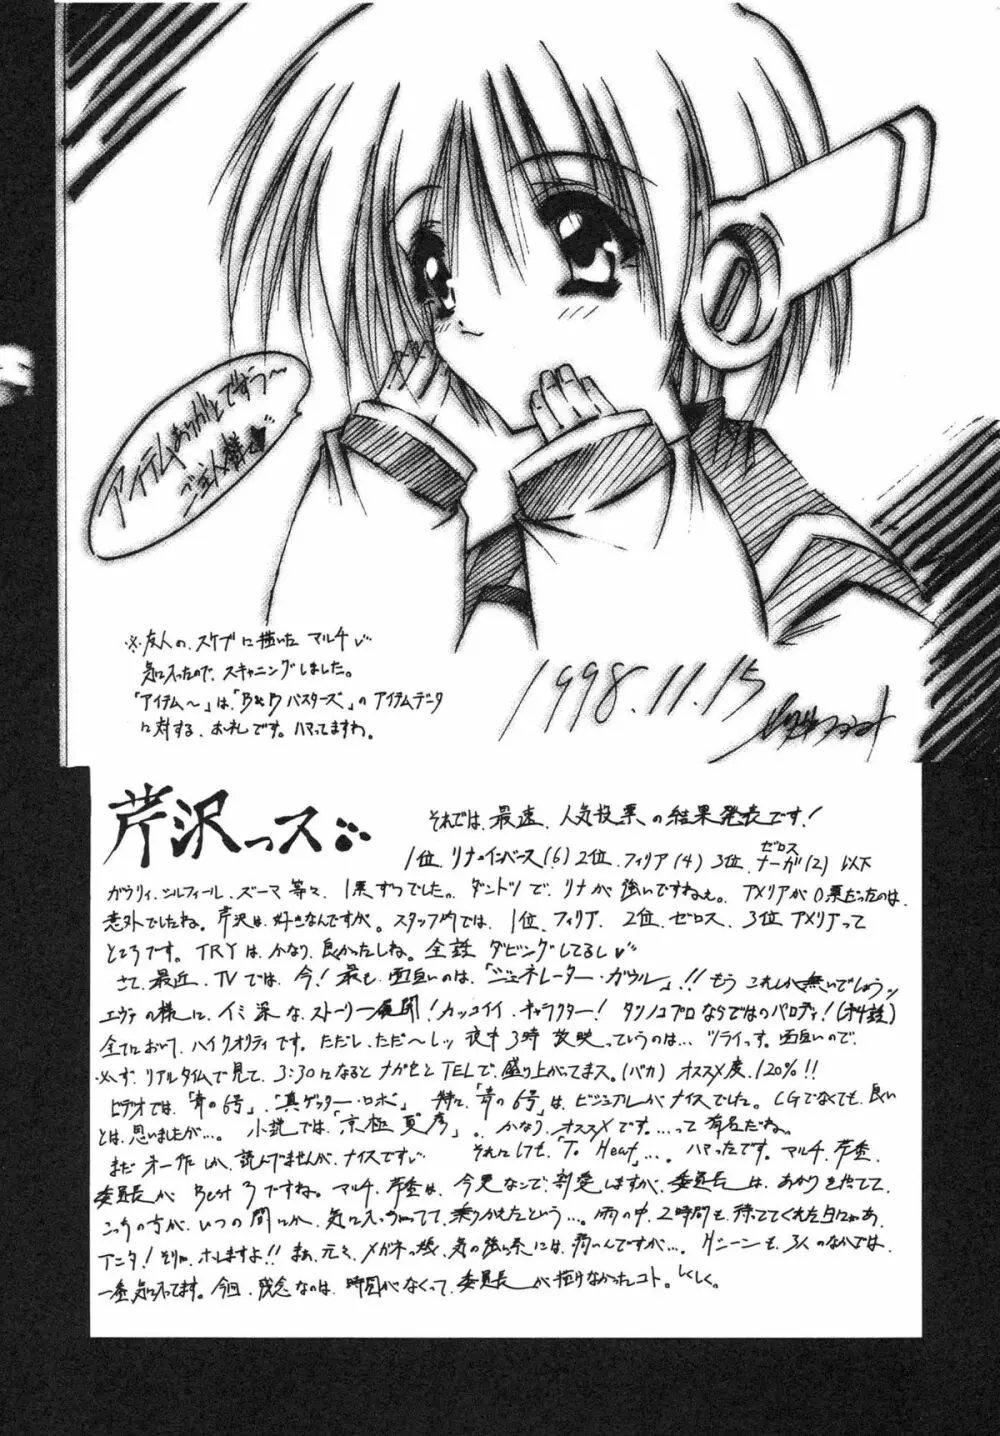 アイテムありがとですう〜
ご主人様
※友人の、スケブに描いた マルチ
気に入ったので、スキャニングしました。
「アイテム〜」は、「B&Dバスターズ」の アイテムデータ
に対する、お礼です。ハマってますわ。
1998.11.15
芹沢っス
それでは、最速、人気投票の結果発表です!
1位、リナ=インバース(6) 2位、フィリア(4) 3位、ゼロス ナーガ(2) 以下
ガウリィ、シルフィール、ズーマ 等々、1票ずつでした。ダントツで、リナが強いですねぇ。アメリアが0票だったのは、
意外でしたね。芹沢は、好きなんですが。スタッフ内では、1位、フィリア、2位、ゼロス、3位 アメリアって
ところです。TRYは、かなり、良かったしね。全話 ダビングしてるし
さて、最近、TVでは、今!最も、面白いのは、「ジェネレーター・ガウル」!!もう これしか無いでしょうッ
エヴァの様に、イミ深な、ストーリー展開!カッコイイ、キャラクター!タツノコプロならではのパロディ!(オ4話)
全てにおいて、ハイクオリティです。ただし、ただ〜しッ 夜中3時 放映っていうのは…ツライっす。面白いので、
必ず、リアルタイムで見て、3:30になると ナガセとTELで、盛り上がってまス。(バカ) オススメ度、120%!!
ビデオでは、「青の6号」、「真ゲッター・ロボ」 特に、「青の6号」は、ビジュアルがナイスでした。CGでなくても、良い
とは、思いましたが…。 小説では、「京極 夏彦」。かなり、オススメです。…って 有名だね。
まだ 一作しか、読んでませんが、ナイスです それにしても、「To Heart」…。ハマったです。マルチ、芹香、
委員長が Best 3ですね。マルチ、芹香は、今更なんで、割愛しますが、委員長は、あかりを立てて、
こっちの方が、いつの間にか、気に入っちゃってて、乗りかえたという…。雨の中、2時間も、待っててくれた日にゃあ、
アニタ!そりゃ、ホレますよ!!まぁ、元々、メガネっ娘、気の強い系には、弱いんですが…。Hシーンも、3人のなかでは、
一番、気に入ってます。今回、残念なのは、時間がなくって、委員長が描けなかったコト。しくしく。